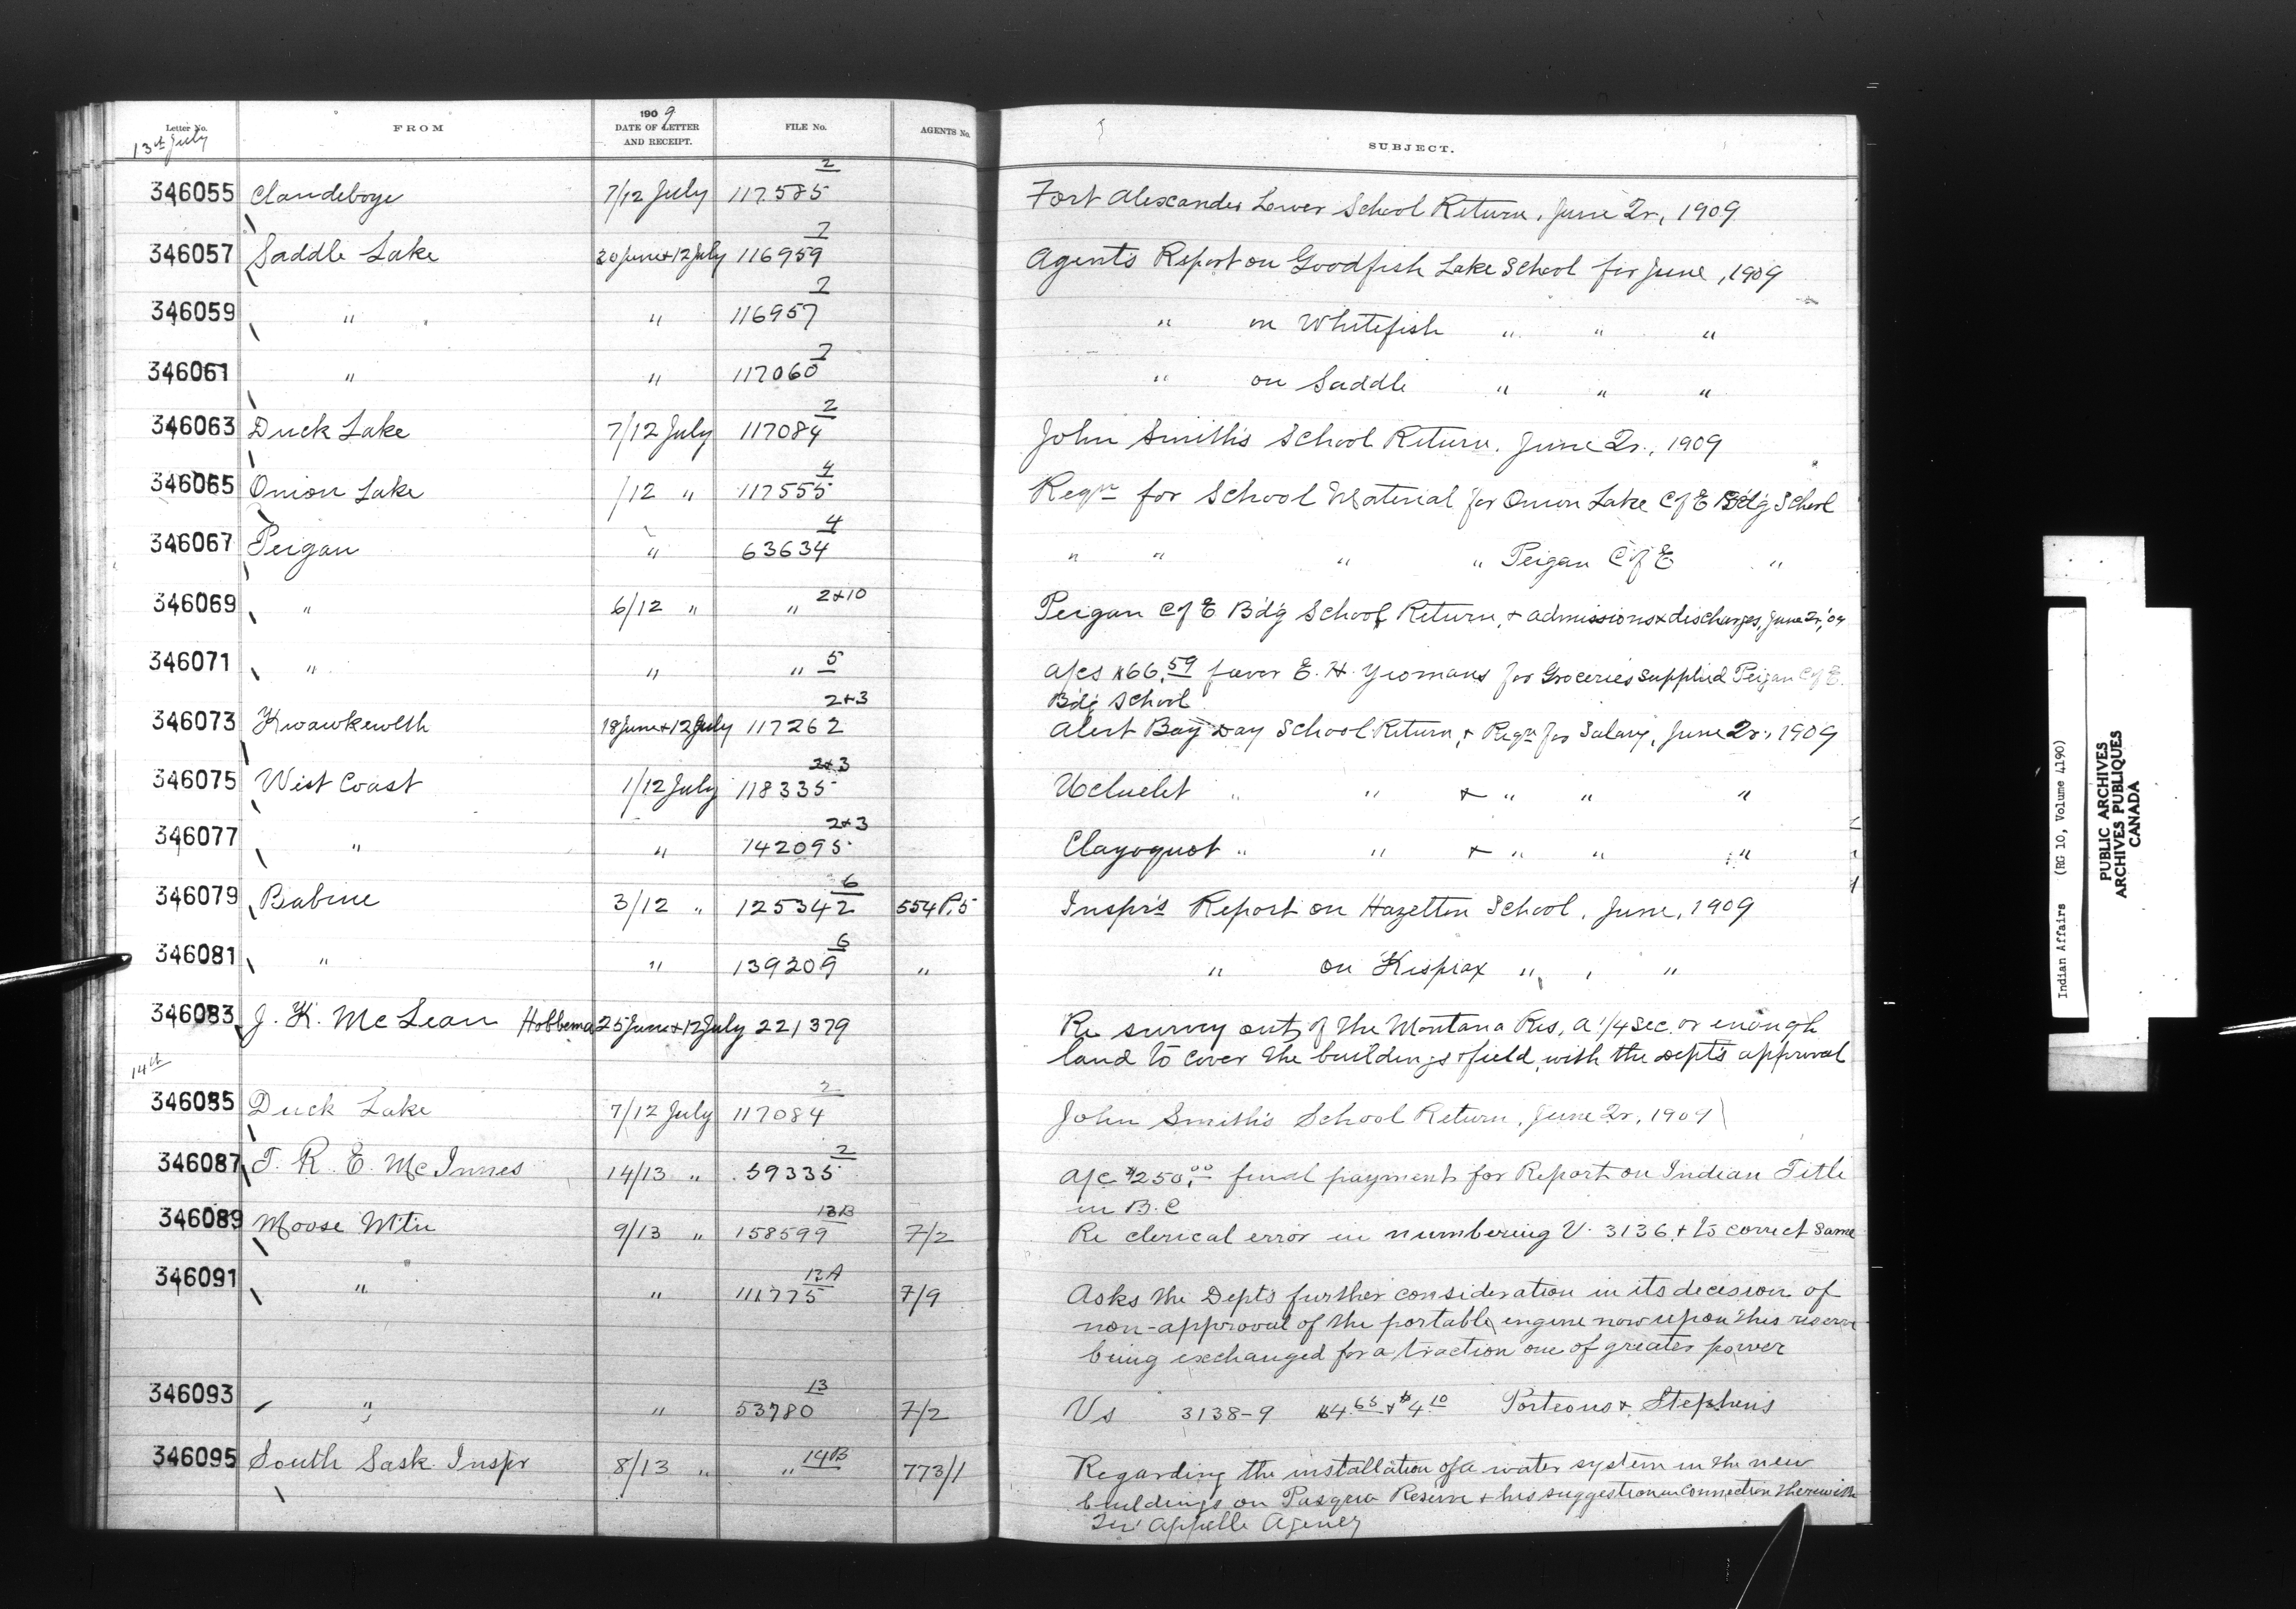 Letter No. FROM 1909 DATE OF LETTER AND RECEIPT. FILE No. AGENTS No. SUBJECT.
13th July
346055 Clandeboye 7/12 July 117585 2 Fort Alexander Lower School Return, June Qr, 1909
346057 Saddle Lake 30 June & 12 July 116959 2 Agent's Report on Goodfish Lake School for June, 1909
346059 " " 116957 2 " on Whitefish " " "
346061 " " 117060 2 " on Saddle " " "
346063 Duck Lake 7/12 July 117084 2 John Smith's School Return, June Qr., 1909
346065 Onion Lake /12 " 117555 4 Reqn for School Material for Onion Lake C of E Bd'g School
346067 Peigan " 63634 4 " " " " Peigan C of E "
346069 " 6/12 " " 2&10 Peigan C of E Bd'g School Return, & admissions & discharges, June Qr, '09
346071 " " " 5 A/cs $66.59 favor E. H. Yeomans for Groceries supplied Peigan C of E.
Bdg School
346073 Kwawkewlth 18 June & 12 July 117262 2&3 Alert Bay Day School Return, & Reqn for Salary, June Qr, 1909
346075 West Coast 1/12 July 118335 2&3 Ucluelet " " & " " "
346077 " " 142095 2&3 Clayoquot " " & " " "
346079 Babine 3/12 " 125342 6 554 P,5 Inspr's Report on Hazelton School, June, 1909
346081 " " 139209 6 " " on Kispiax " , "
346083 J. K. McLean Hobbema 25 June & 12 July 221379 Re survey out of the Montana Res, a 1/4 sec. or enough
land to cover the buildings & field, with the Dept's approval
14th
346085 Duck Lake 7/12 July 117084 2 John Smith's School Return, June Qr, 1909
346087 T. R. E. McInnes 14/13 " 59335 2 A/c $250.00 final payment for Report on Indian Title
in B.C
346089 Moose Mtn 9/13 " 158599 13B 7/2 Re clerical error in numbering V. 3136, & to correct same
346091 " " 111775 12A 7/9 Asks the Dept's further consideration in its decision of
non-approval of the portable engine now upon this reserve
being exchanged for a traction one of greater power
346093 " " 53780 13 7/2 Vs 3138-9 $4.65 & $4.10 Porteous & Stephens
346095 South Sask. Inspr 8/13 " " 14B 773/1 Regarding the installation of a water system in the new
buildings on Pasqua Reserve & his suggestion in connection therewith
Qu'Appelle Agency
Indian Affairs (RG 10, Volume 4190)
PUBLIC ARCHIVES
ARCHIVES PUBLIQUES
CANADA